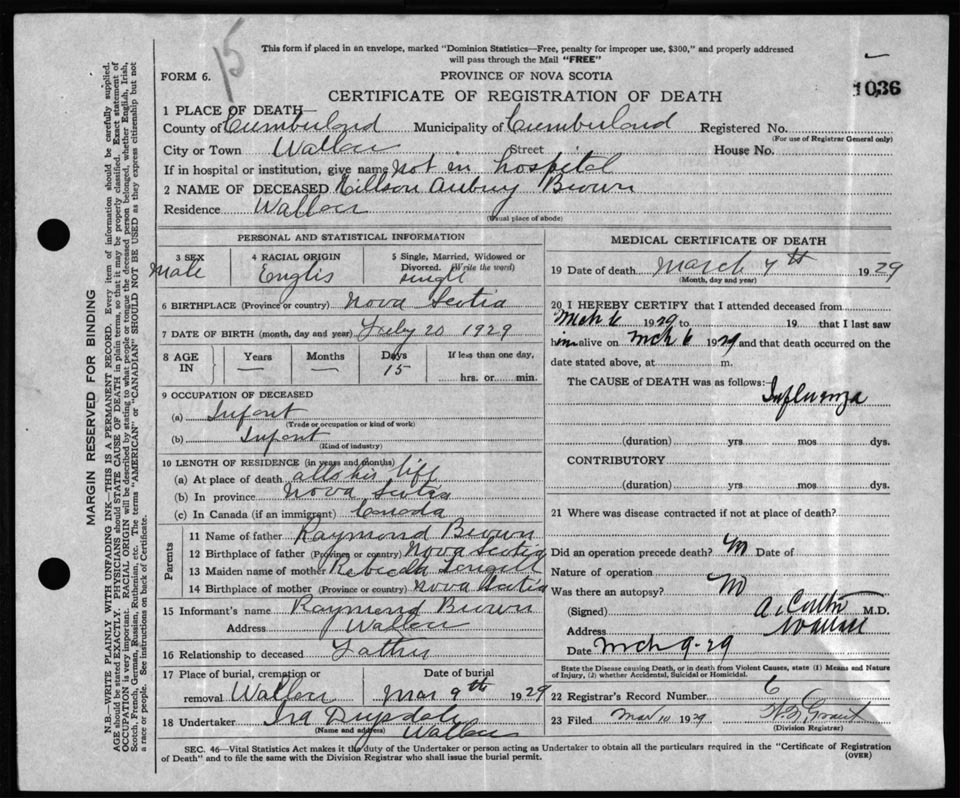 15
This form if placed in an envelope, marked "Dominion Statistics—Free, penalty for improper use, $300," and properly addressed
will pass through the Mail "FREE"
FORM 6.
PROVINCE OF NOVA SCOTIA
1036
CERTIFICATE OF REGISTRATION OF DEATH
1 PLACE OF DEATH—
County of Cumberland Municipality of Cumberland Registered No.
(For use of Registrar General only)
City or Town Wallace Street House No.
If in hospital or institution, give name Not in hospital
2 NAME OF DECEASED Aubrey Brown
Residence Wallace
(Usual place of abode)
PERSONAL AND STATISTICAL INFORMATION
3 SEX 4 RACIAL ORIGIN 5 Single, Married, Widowed or Divorced. (Write the word)
Male Englis single
6 BIRTHPLACE (Province or country) Nova Scotia
7 DATE OF BIRTH (month, day and year) July 20 1929
8 AGE IN Years Months Days If less than one day,
— — 15 hrs. or min.
9 OCCUPATION OF DECEASED
(a) Infant
(Trade or occupation or kind of work)
(b) Infant
(Kind of industry)
10 LENGTH OF RESIDENCE (in years and months)
(a) At place of death all his life
(b) In province Nova Scotia
(c) In Canada (if an immigrant) Canada
Parents
11 Name of father Raymond Brown
12 Birthplace of father (Province or country) Nova Scotia
13 Maiden name of mother Rebecca Langill
14 Birthplace of mother (Province or country) Nova Scotia
15 Informant's name Raymond Brown
Address Wallace
16 Relationship to deceased Father
17 Place of burial, cremation or removal Wallace Date of burial Mar 9th 1929
18 Undertaker Ira Drysdale
(Name and address) Wallace
MEDICAL CERTIFICATE OF DEATH
19 Date of death March 7th 1929
(Month, day and year)
20 I HEREBY CERTIFY that I attended deceased from
Mch 6 1929 to 19 that I last saw
him alive on Mch 6 1929 and that death occurred on the
date stated above, at m.
The CAUSE of DEATH was as follows:
Influenza
(duration) yrs mos dys.
CONTRIBUTORY
(duration) yrs. mos. dys.
21 Where was disease contracted if not at place of death?
Did an operation precede death? No Date of
Nature of operation
Was there an autopsy? No
(Signed) M.D.
Address Wallace
Date Mch 9-29
State the Disease causing Death, or in death from Violent Causes, state (1) Means and Nature
of Injury, (2) whether Accidental, Suicidal or Homicidal.
22 Registrar's Record Number 6
23 Filed Mar 10 1929 Grant
(Division Registrar)
SEC. 46—Vital Statistics Act makes it the duty of the Undertaker or person acting as Undertaker to obtain all the particulars required in the "Certificate of Registration
of Death" and to file the same with the Division Registrar who shall issue the burial permit.
(OVER)
MARGIN RESERVED FOR BINDING
N.B.—WRITE PLAINLY WITH UNFADING INK—THIS IS A PERMANENT RECORD. Every item of information should be carefully supplied.
AGE should be stated EXACTLY. PHYSICIANS should STATE CAUSE OF DEATH in plain terms, so that it may be properly classified. Exact statement of
OCCUPATION is very important. RACIAL ORIGIN will be described by stating to what people or tongue the deceased person belonged, whether English, Irish,
Scotch, French, German, Russian, Ruthenian, etc. The terms "AMERICAN" or "CANADIAN" SHOULD NOT BE USED as they express citizenship but not
a race or people. See instructions on back of Certificate.